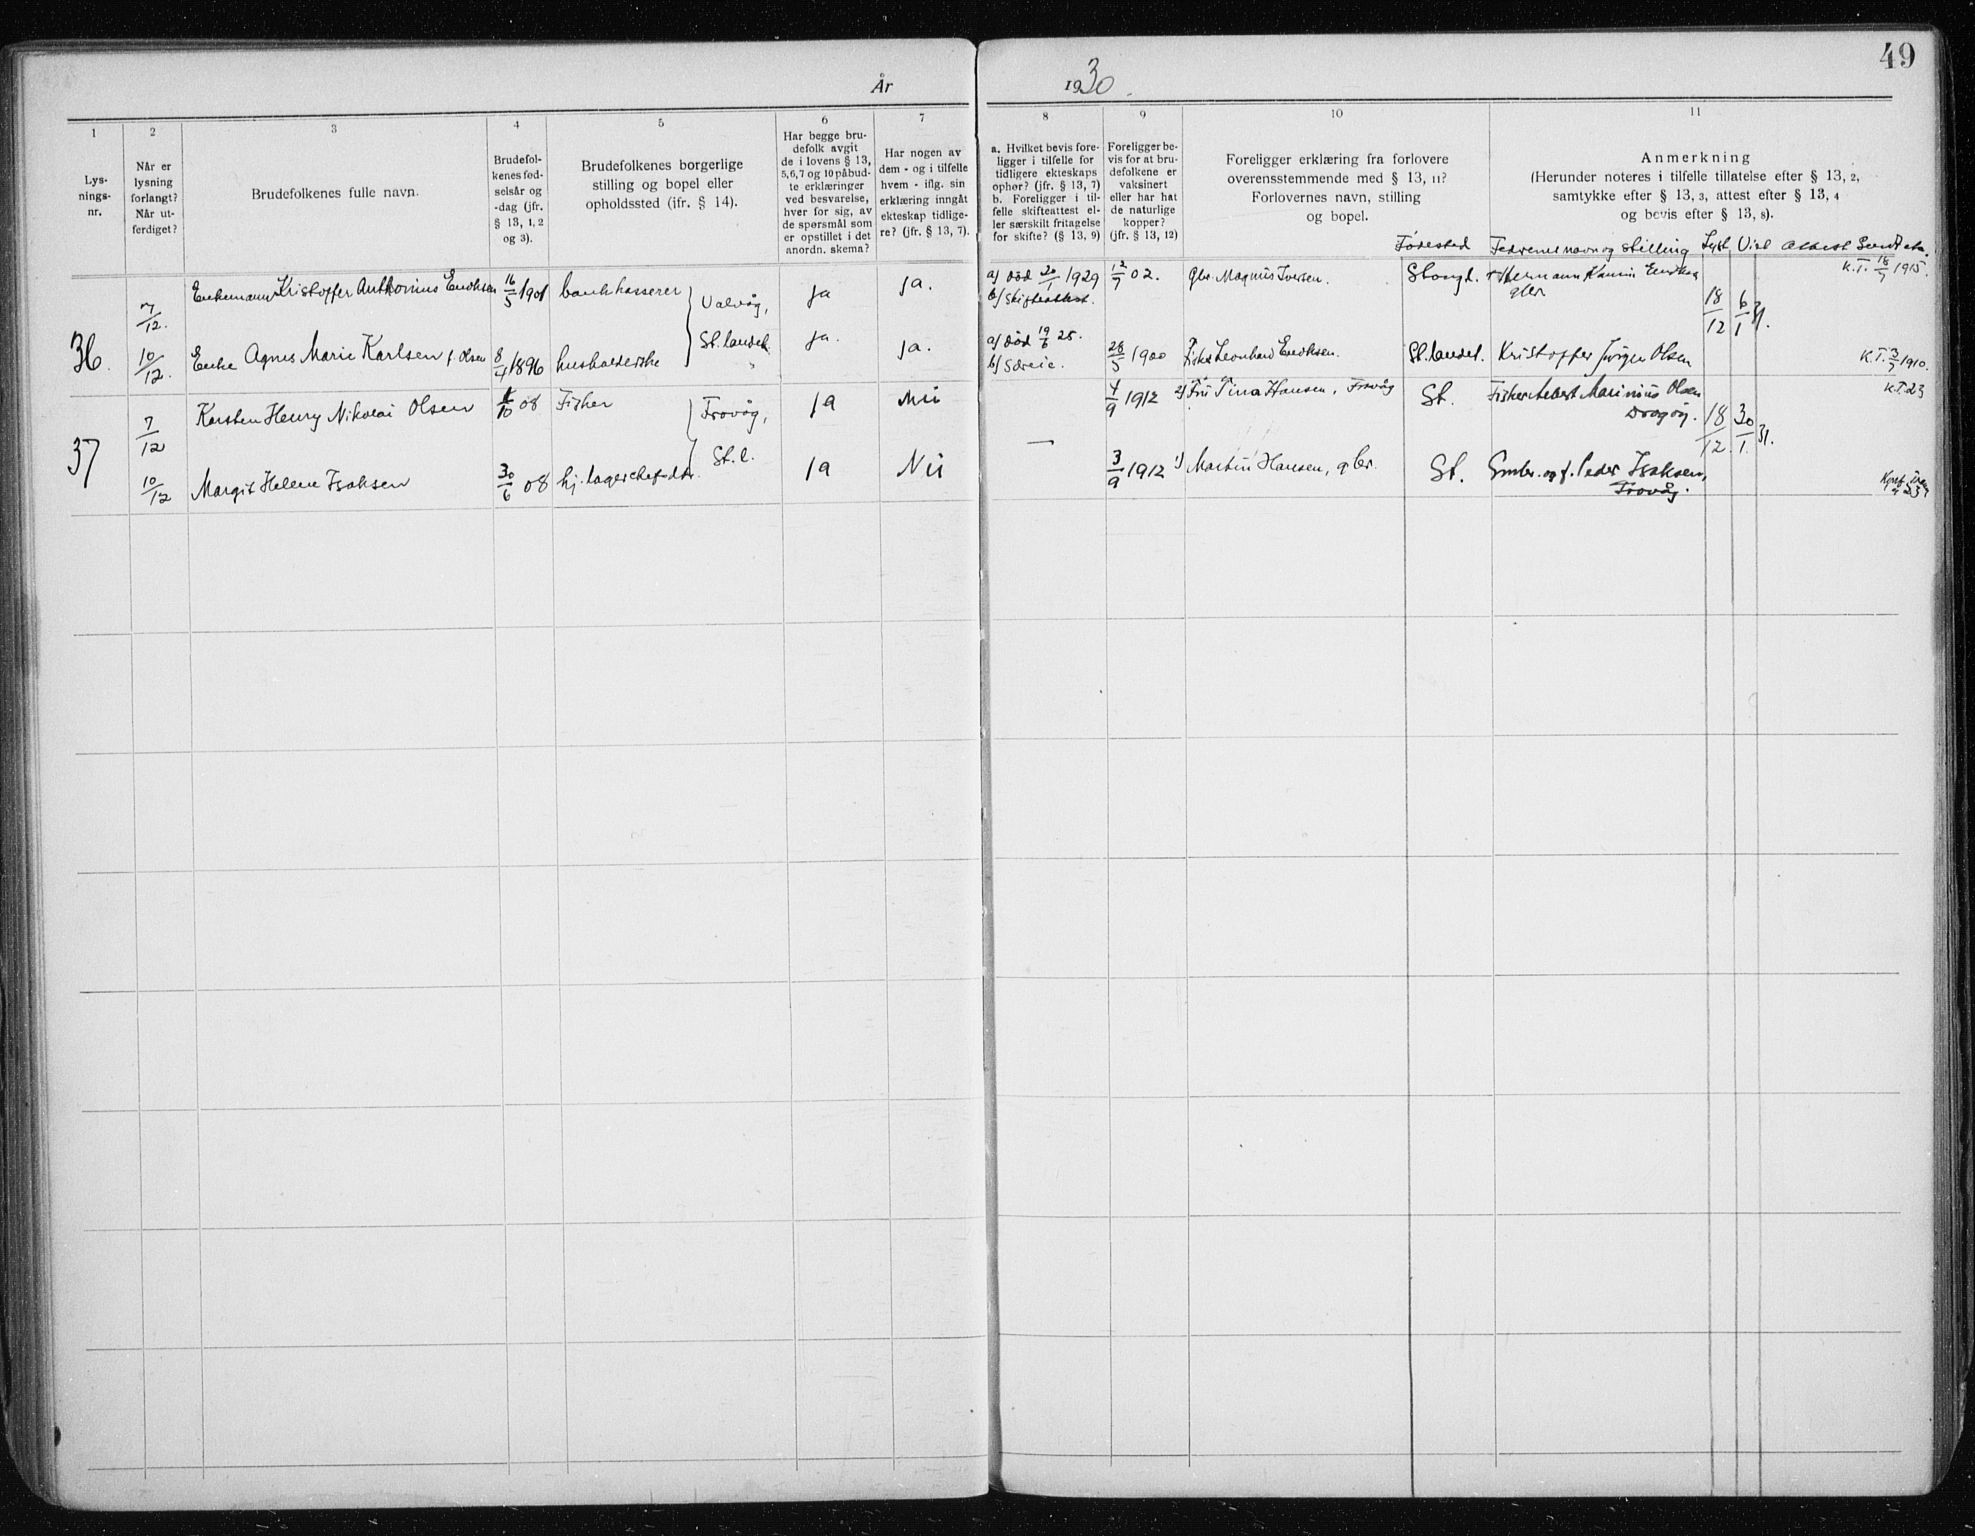 49
År 1930.
1 2 3 4 5 6 7 8 9 10 11
Lys-
nings-
nr.
Når er
lysning
forlangt?
Når ut-
ferdiget?
Brudefolkenes fulle navn.
Brudefol-
kenes fød-
selsår og
-dag (jfr.
§ 13, 1, 2
og 3).
Brudefolkenes borgerlige
stilling og bopel eller
opholdssted (ifr. § 14).
Har begge bru-
defolk avgit
de i lovens § 13,
5,6,7 og 10 påbud-
te erklæringer
ved besvarelse,
hver for sig, av
de spørsmål som
er opstillet i det
anordn. skema?
Har nogen av
dem - og i tilfelle
hvem - iflg. sin
erklæring inngått
ekteskap tidlige-
re? (jfr. § 13, 7).
a. Hvilket bevis fore-
ligger i tilfelle for
tidligere ekteskaps
ophør? (jfr. § 13, 7)
b. Foreligger i til-
felle skifteattest el-
ler særskilt fritagelse
for skifte? (§ 13, 9)
Foreligger be-
vis for at bru-
defolkene er
vaksinert
eller har hat
de naturlige
kopper?
(jfr. § 13, 12)
Foreligger erklæring fra forlovere
overensstemmende med § 13, 11?
Forlovernes navn, stilling
og bopel.
Fødested
Anmerkning
(Herunder noteres i tilfelle tillatelse efter § 13, 2,
samtykke efter § 13, 3, attest efter § 13, 4
og bevis efter § 13, 8).
Fedrenes navn og stilling Lyst Viel Attest Sendt
36.
7/12.
Enkemann Kristoffer Anthonius Eriksen 16/5 1901 bankkasserer
Valvåg,
St.landet
ja ja.
a/ død 20/1 1929
b/ Skifteattest.
12/7 02. gbr. Magnus Iversen.
Hermann
gbr.
18/12 6/1 31.
K.T. 18/7 1915.
10/12.
Enke Agnes Marie Karlsen f. Olsen 8/4 1896 husholderske "
ja. ja.
a/ død 19/6 25.
b/ Særeie.
28/5 1900 Leonhard Eriksen. St.landet. Kristoffer Jørgen Olsen
K.T. 3/7 1910.
37
7/12
Karsten Henry Nikolai Olsen /10 08 Fisker
Trovåg,
St.l.
ja Nei
4/9 1912 2) Fru Tina Hansen, Trovåg St. Fisker Marinius Olsen
18/12. 30/1. 31.
K.T. 23
10/12
Margit Helene Isaksen 30/6 08 hj.
ja Nei
—
3/9 1912 1) Martin Hansen, gbr. St. Gmbr. og f. Peder Isaksen,
Trovåg.